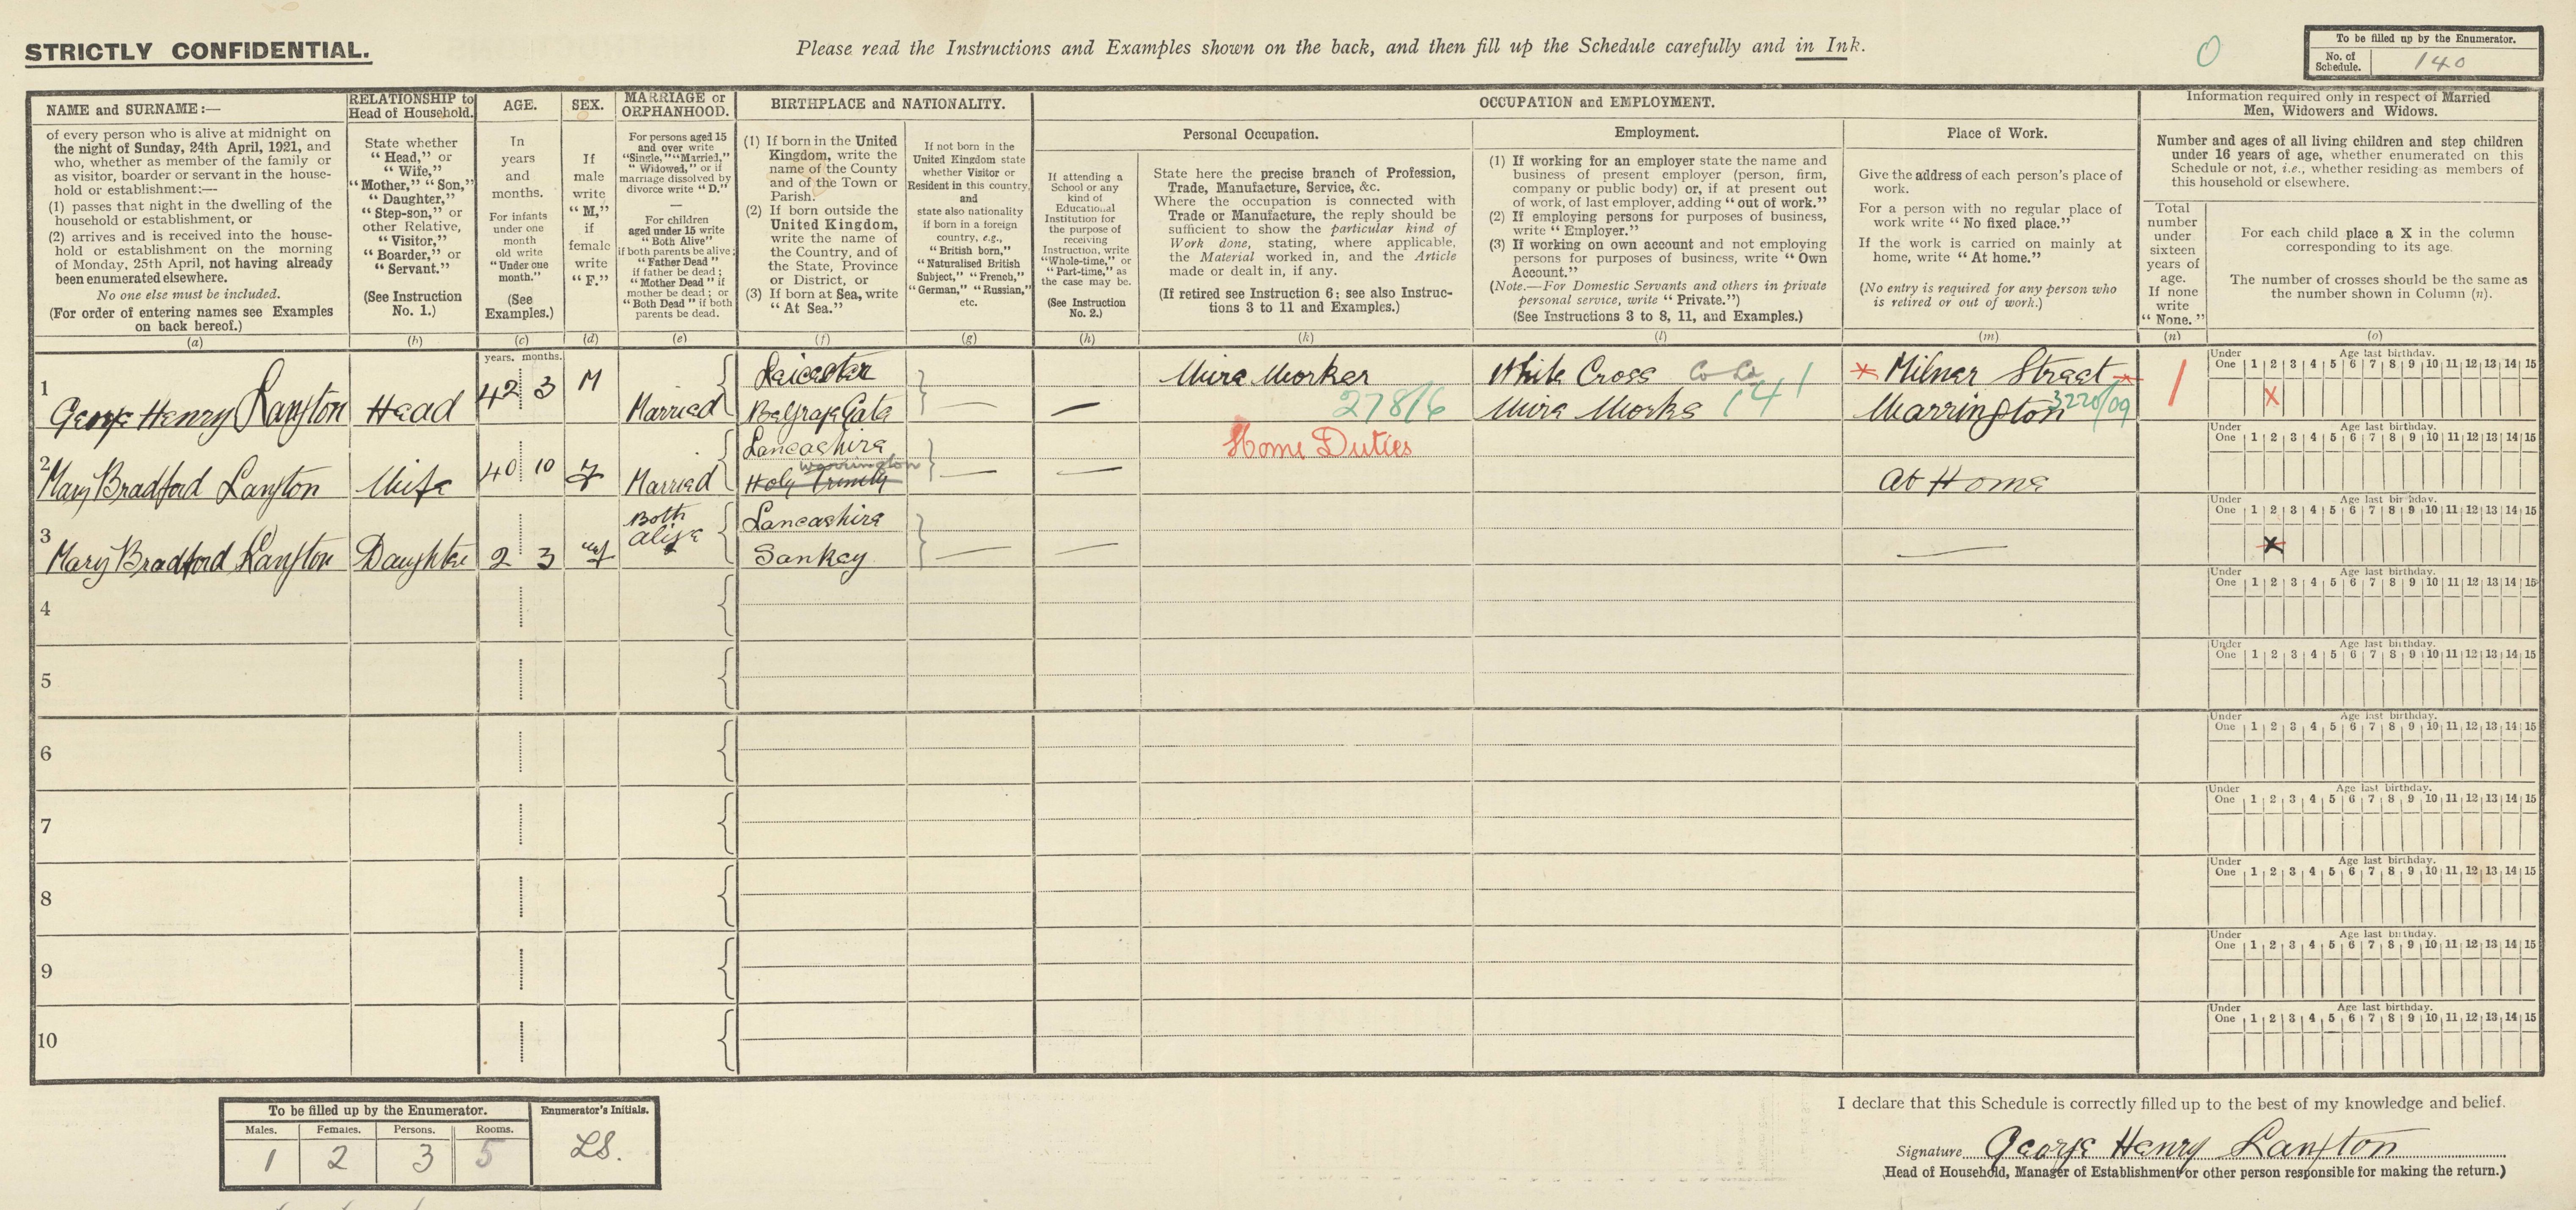 STRICTLY CONFIDENTIAL.
Please read the Instructions and Examples shown on the back, and then fill up the Schedule carefully and in Ink.
0
To be filled up by the Enumerator.
No. of Schedule. 140
NAME and SURNAME:—
of every person who is alive at midnight on
the night of Sunday, 24th April, 1921, and
who, whether as member of the family or
as visitor, boarder or servant in the house-
hold or establishment:—
(1) passes that night in the dwelling of the
household or establishment, or
(2) arrives and is received into the house-
hold or establishment on the morning
of Monday, 25th April, not having already
been enumerated elsewhere.
No one else must be included.
(For order of entering names see Examples
on back hereof.)
(a)
RELATIONSHIP to
Head of Household.
State whether
"Head," or
"Wife,"
"Mother," "Son,"
"Daughter,"
"Step-son," or
other Relative,
"Visitor,"
"Boarder," or
"Servant."
(See Instruction
No. 1.)
(b)
AGE.
In
years
and
months.
For infants
under one
month
old write
"Under one
month."
(See
Examples.)
(c)
SEX.
If
male
write
"M,"
if
female
write
"F."
(d)
MARRIAGE or
ORPHANHOOD.
For persons aged 15
and over write
"Single," "Married,"
"Widowed," or if
marriage dissolved by
divorce write "D."
—
For children
aged under 15 write
"Both Alive"
if both parents be alive;
"Father Dead"
if father be dead;
"Mother Dead" if
mother be dead; or
"Both Dead" if both
parents be dead.
(e)
BIRTHPLACE and NATIONALITY.
(1) If born in the United
Kingdom, write the
name of the County
and of the Town or
Parish.
(2) If born outside the
United Kingdom,
write the name of
the Country, and of
the State, Province
or District, or
(3) If born at Sea, write
"At Sea."
(f)
If not born in the
United Kingdom state
whether Visitor or
Resident in this country,
and
state also nationality
if born in a foreign
country, e.g.,
"British born,"
"Naturalised British
Subject," "French,"
"German," "Russian,"
etc.
(g)
OCCUPATION and EMPLOYMENT.
If attending a
School or any
kind of
Educational
Institution for
the purpose of
receiving
Instruction, write
"Whole-time," or
"Part-time," as
the case may be.
(See Instruction
No. 2.)
(h)
Personal Occupation.
State here the precise branch of Profession,
Trade, Manufacture, Service, &c.
Where the occupation is connected with
Trade or Manufacture, the reply should be
sufficient to show the particular kind of
Work done, stating, where applicable,
the Material worked in, and the Article
made or dealt in, if any.
(If retired see Instruction 6; see also Instruc-
tions 3 to 11 and Examples.)
(k)
Employment.
(1) If working for an employer state the name and
business of present employer (person, firm,
company or public body) or, if at present out
of work, of last employer, adding "out of work."
(2) If employing persons for purposes of business,
write "Employer."
(3) If working on own account and not employing
persons for purposes of business, write "Own
Account."
(Note.—For Domestic Servants and others in private
personal service, write "Private.")
(See Instructions 3 to 8, 11, and Examples.)
(l)
Place of Work.
Give the address of each person's place of
work.
For a person with no regular place of
work write "No fixed place."
If the work is carried on mainly at
home, write "At home."
(No entry is required for any person who
is retired or out of work.)
(m)
Information required only in respect of Married
Men, Widowers and Widows.
Number and ages of all living children and step children
under 16 years of age, whether enumerated on this
Schedule or not, i.e., whether residing as members of
this household or elsewhere.
Total
number
under
sixteen
years of
age.
If none
write
"None."
(n)
For each child place a X in the column
corresponding to its age.
The number of crosses should be the same as
the number shown in Column (n).
(o)
years. months.
1 George Henry Langton Head 42 3 M Married Leicester Belgrave Gate — — Wire Worker 278/6 White Cross Co Ld Wire Works 141 Milner Street Warrington 3220/09 1 X
Under One Age last birthday. 1 2 3 4 5 6 7 8 9 10 11 12 13 14 15
2 Mary Bradford Langton Wife 40 10 F Married Lancashire Warrington Holy Trinity — — Home Duties At Home
Under One Age last birthday. 1 2 3 4 5 6 7 8 9 10 11 12 13 14 15
3 Mary Bradford Langton Daughter 2 3 F Both alive Lancashire Sankey — — — X
Under One Age last birthday. 1 2 3 4 5 6 7 8 9 10 11 12 13 14 15
4
Under One Age last birthday. 1 2 3 4 5 6 7 8 9 10 11 12 13 14 15
5
Under One Age last birthday. 1 2 3 4 5 6 7 8 9 10 11 12 13 14 15
6
Under One Age last birthday. 1 2 3 4 5 6 7 8 9 10 11 12 13 14 15
7
Under One Age last birthday. 1 2 3 4 5 6 7 8 9 10 11 12 13 14 15
8
Under One Age last birthday. 1 2 3 4 5 6 7 8 9 10 11 12 13 14 15
9
Under One Age last birthday. 1 2 3 4 5 6 7 8 9 10 11 12 13 14 15
10
Under One Age last birthday. 1 2 3 4 5 6 7 8 9 10 11 12 13 14 15
To be filled up by the Enumerator.
Enumerator's Initials.
Males. Females. Persons. Rooms.
1 2 3 5 LS.
I declare that this Schedule is correctly filled up to the best of my knowledge and belief.
Signature George Henry Langton
Head of Household, Manager of Establishment or other person responsible for making the return.)